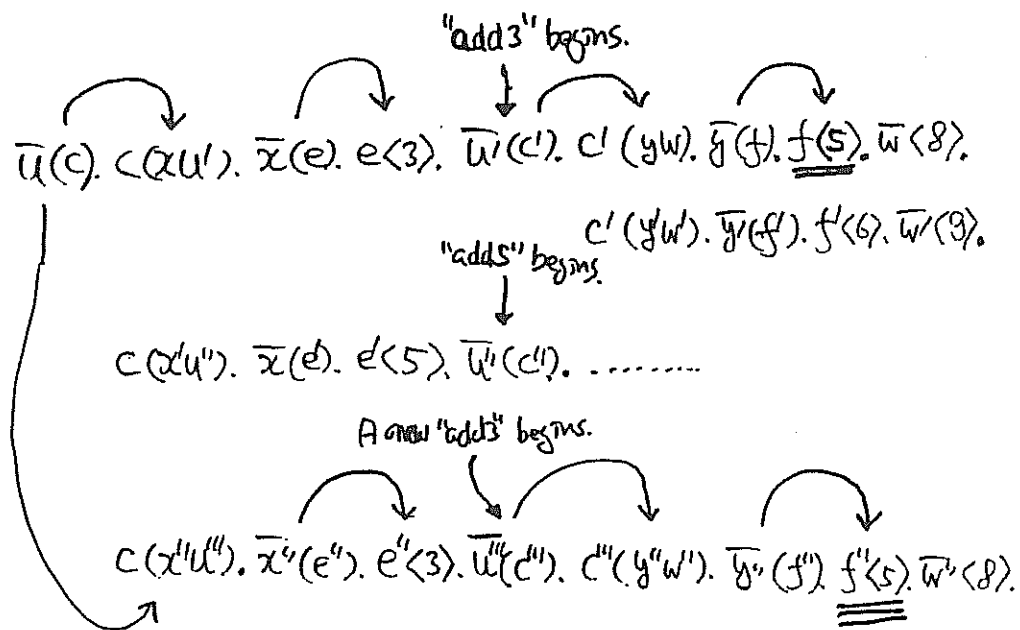 "add3" begins.
u̅(c). c(xu'). x̅(e). e<3). u̅'(c'). c'(yw). y̅(f). f(5). w̅<8).
c'(y'w'). y̅'(f'). f'<6). w̅'<9).
"add5" begins.
c(x'u''). x̅(e'). e'<5). u̅''(c''). .........
A new "add3" begins.
c(x''u'''). x̅''(e''). e''<3). u̅'''(c'''). c'''(y''w''). y̅''(f''). f''<5). w̅''<8).